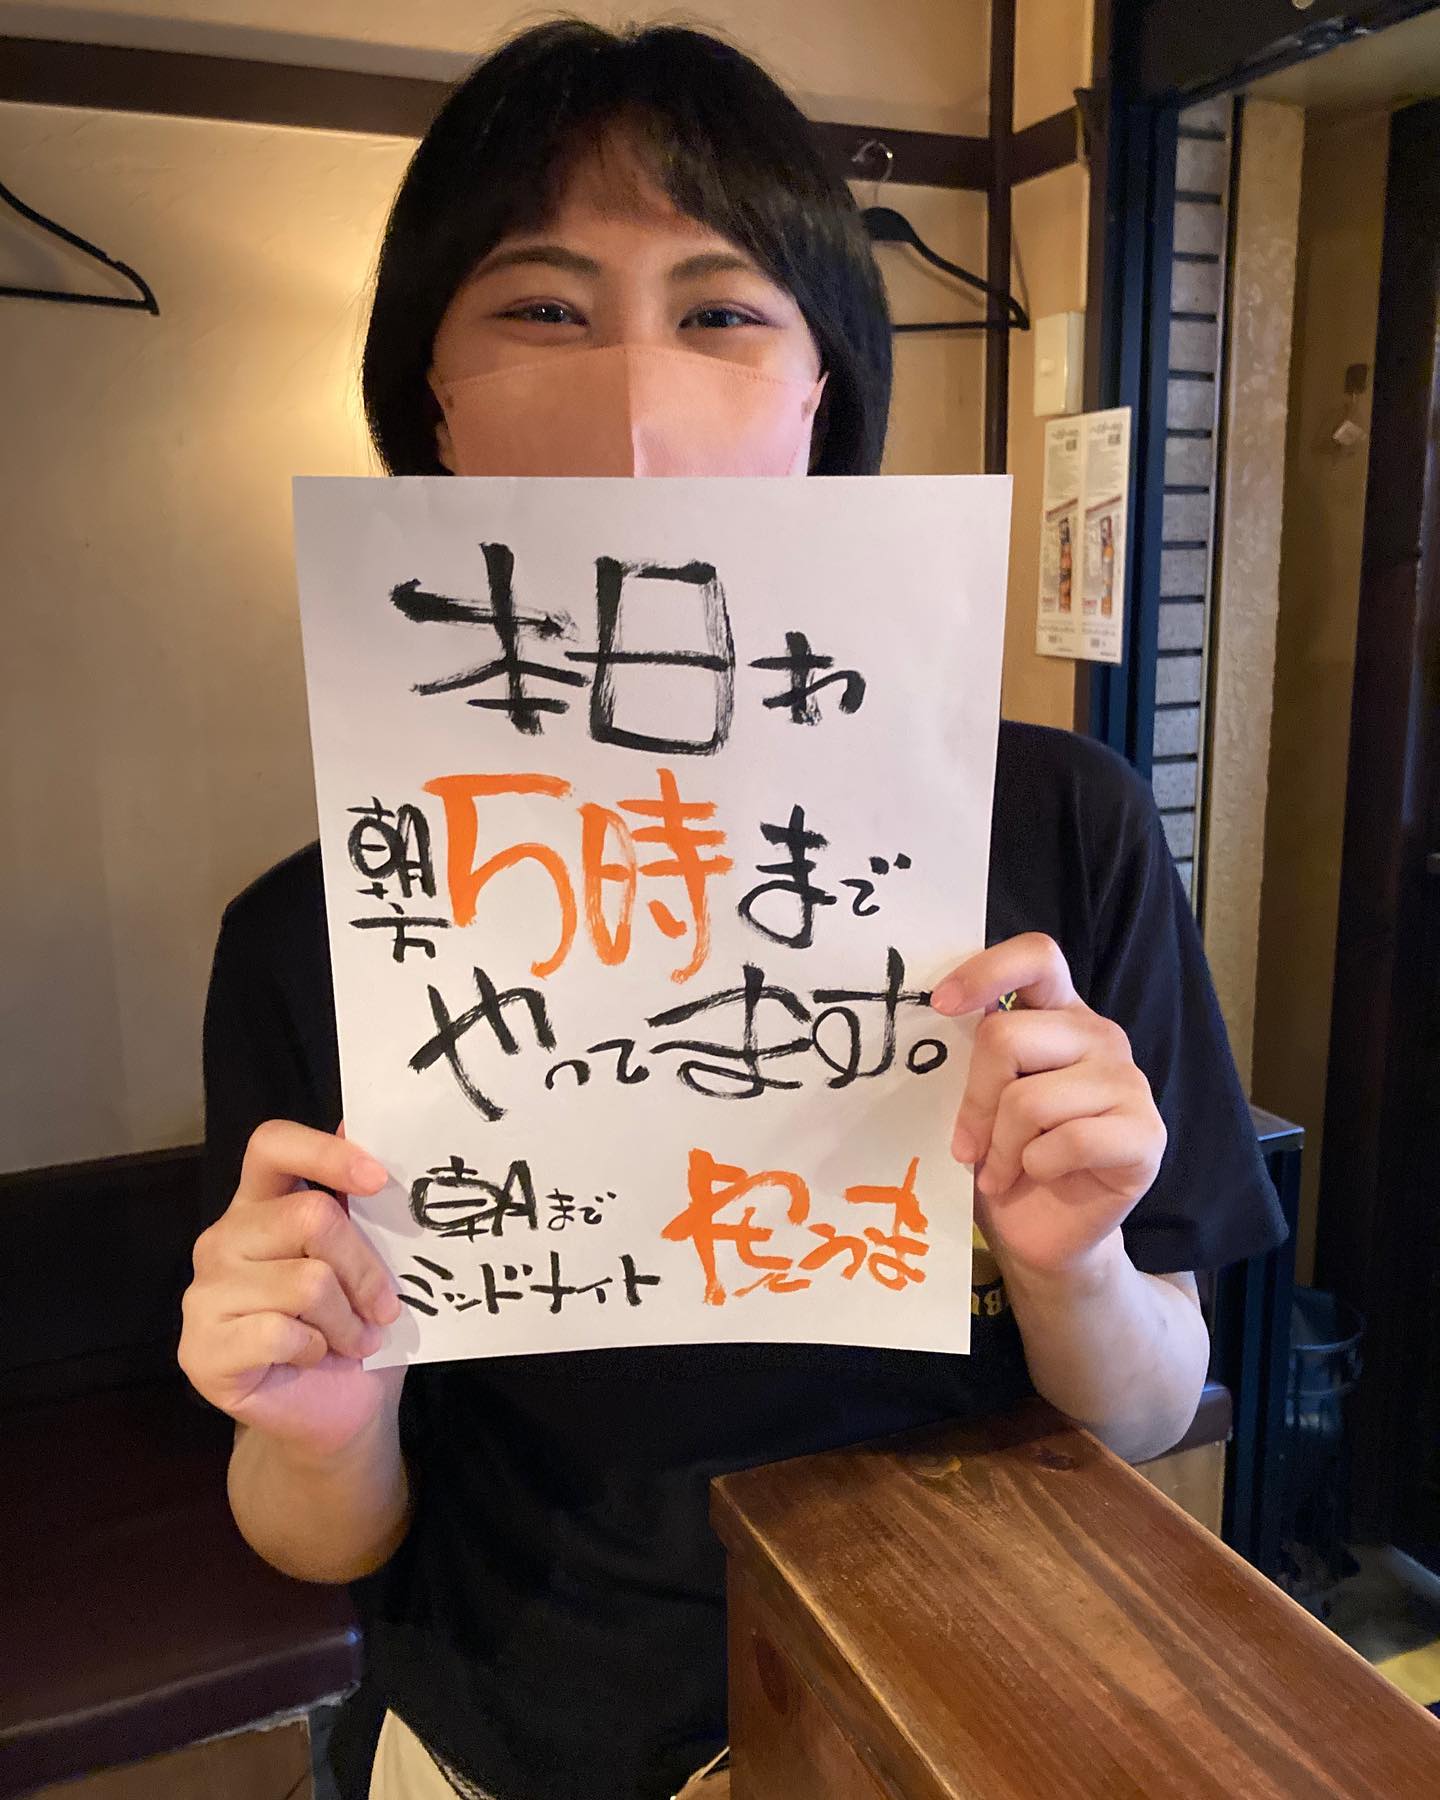 本日わ
朝方5時まで
やってます。
朝まで
ミッドナイト